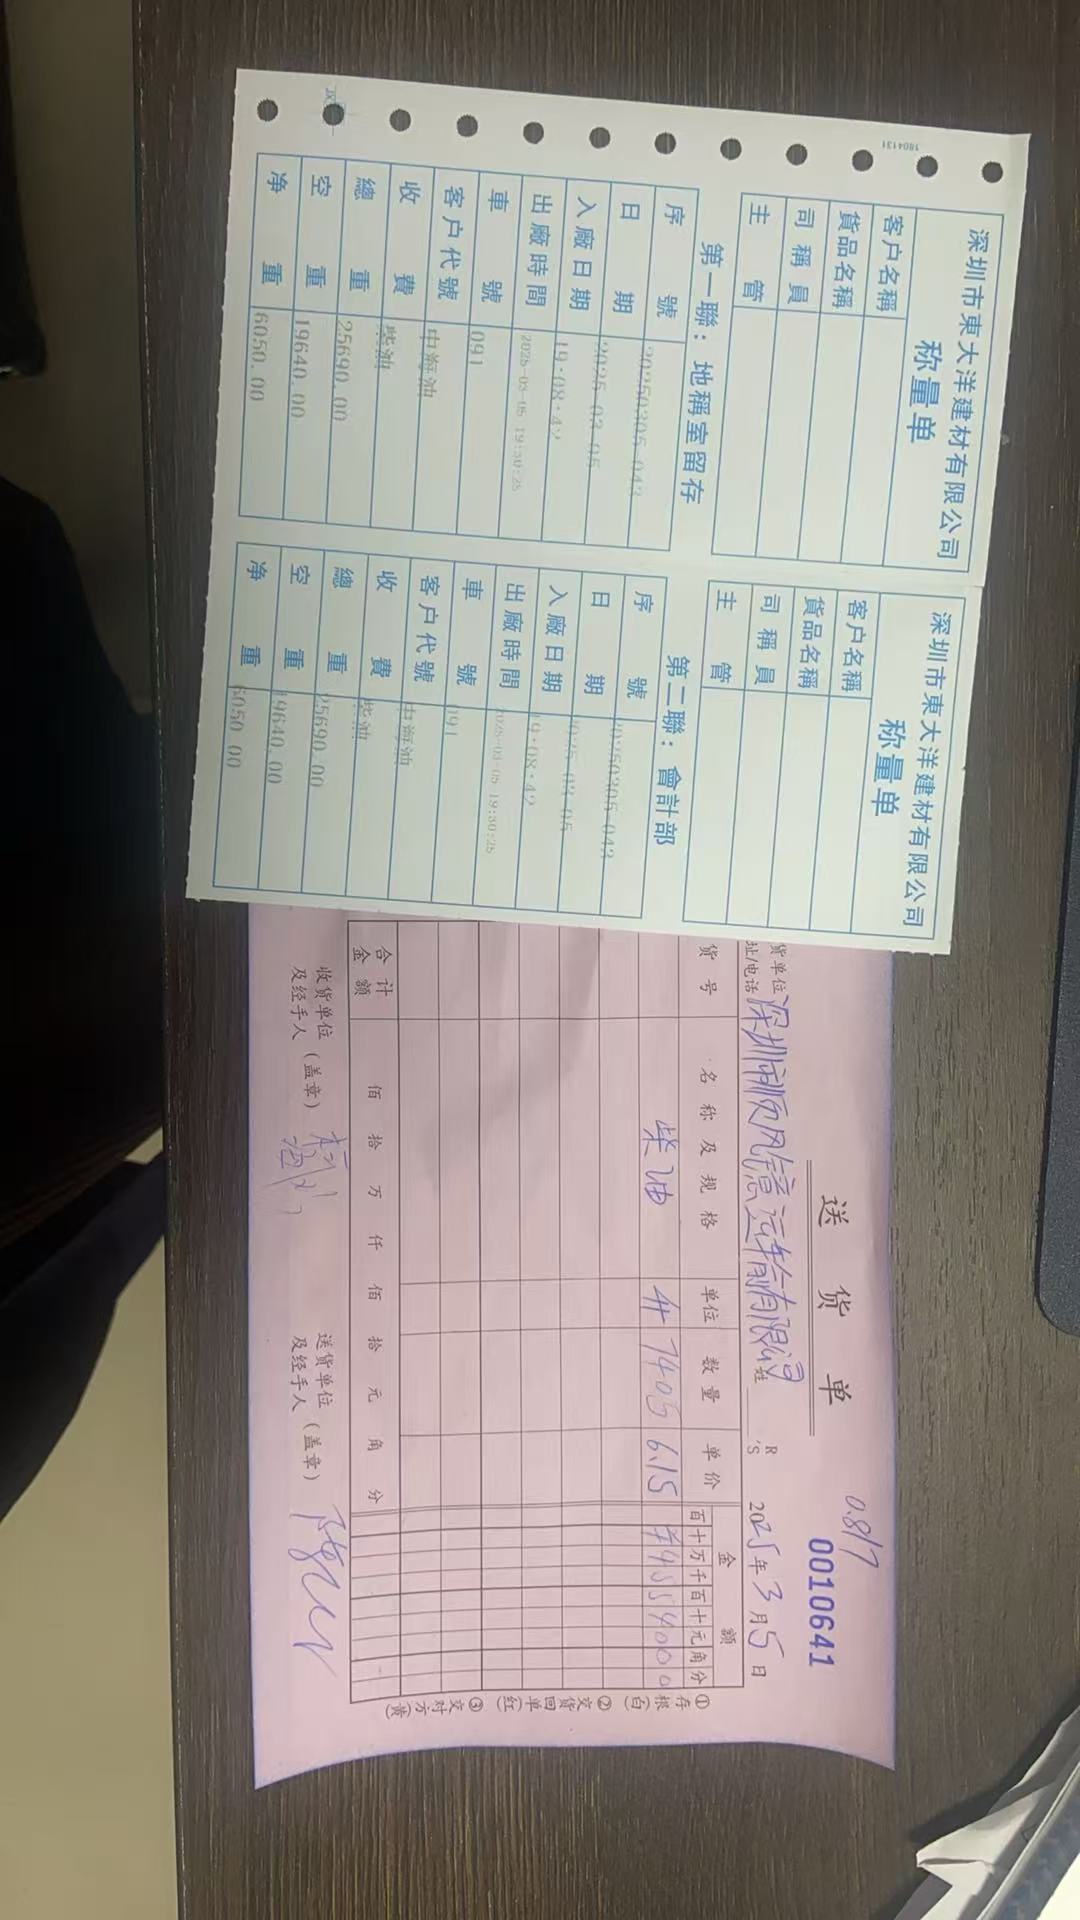 深圳市東大洋建材有限公司
称量单
客户名稱
貨品名稱
司稱員
主管
第一聯：地稱室留存
序號 20250305-043
日期 2025-03-05
入廠日期 19:08:42
出廠時間 2025-03-05 19:30:25
車號 091
客户代號 中海油
收費 柴油
總重 25690.00
空重 19640.00
净重 6050.00
1804131
深圳市東大洋建材有限公司
称量单
客户名稱
貨品名稱
司稱員
主管
第二聯：會計部
序號 20250305-043
日期 2025-03-05
入廠日期 19:08:42
出廠時間 2025-03-05 19:30:25
車號 091
客户代號 中海油
收費 柴油
總重 25690.00
空重 19640.00
净重 6050.00
0.817
送货单 0010641
货单位
址/电话 深圳 运输有限
2025年3月5日
货号 名称及规格 单位 数量 单价 金额
百十万千百十元角分
柴油 升 7405 6.15 ¥4554000
合计金额 佰 拾 万 仟 佰 拾 元 角 分
收货单位及经手人（盖章）
送货单位及经手人（盖章）
①存根(白) ②交货回单(红) ③交对方(黄)